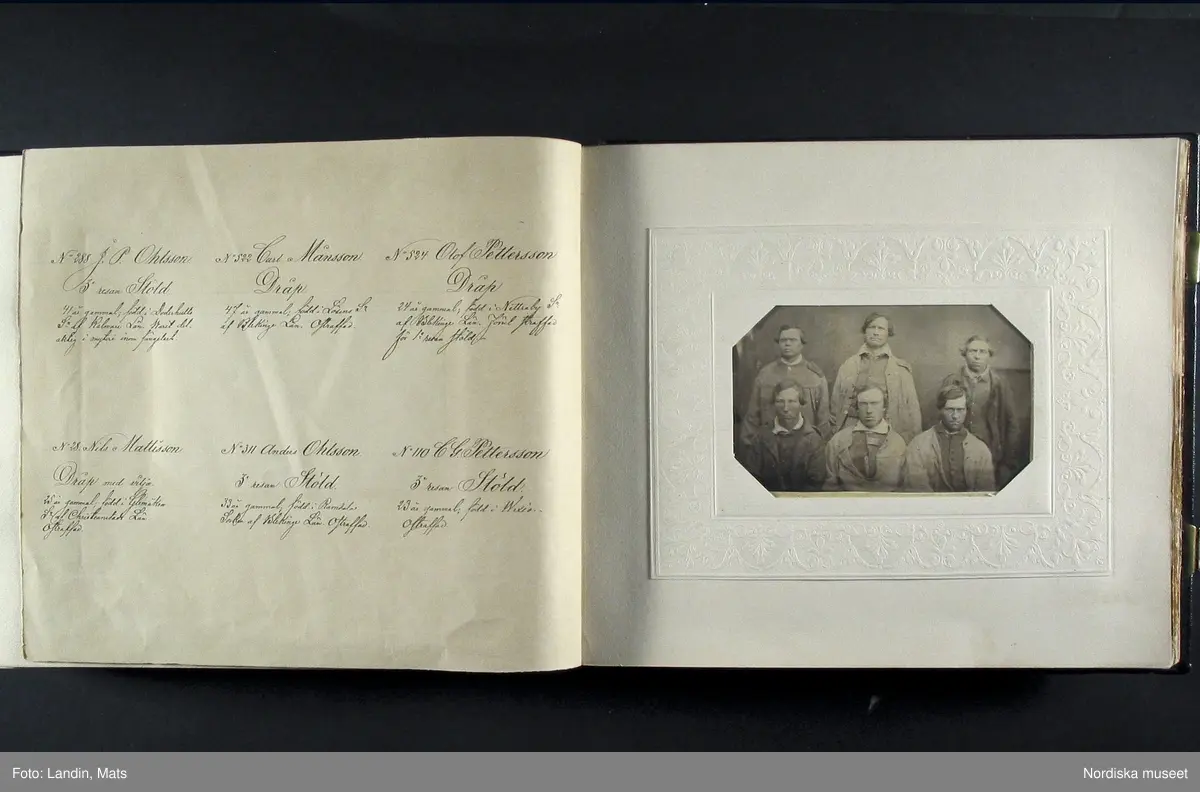 No 388 J. P. Ohlsson
5e resan Stöld
41 år gammal, född i
Sn af Kalmar Län.
No 522 Carl Månsson
Dråp
47 år gammal, född i Lösens Sn
af Blekinge Län. Ostraffad.
No 524 Olof Pettersson
Dråp
24 år gammal, född i Nettraby Sn
af Blekinge Län. Förut straffad
för 1a resan stöld.
No 28. Nils Mattisson
Dråp med vilja
25 år gammal, född i
Sn af Christianstads Län
Ostraffad
No 311 Anders Ohlsson
5e resan Stöld
33 år gammal, född i Ramdala
Socken af Blekinge Län. Ostraffad.
No 110 C. G. Pettersson
5e resan Stöld
23 år gammal, född i Wexiö.
Ostraffad.
Foto: Landin, Mats
Nordiska museet